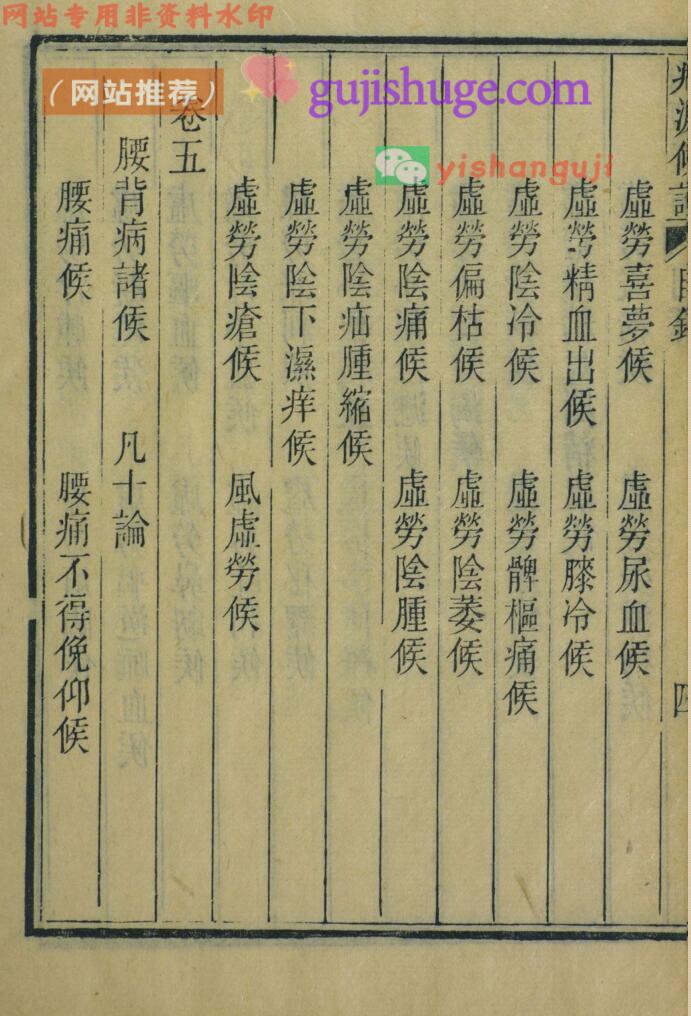 网站专用非资料水印
（网站推荐）
gujishuge.com
yishanguji
候
目錄
四
虛勞喜夢候 虛勞尿血候
虛勞精血出候 虛勞膝冷候
虛勞陰冷候 虛勞髀樞痛候
虛勞偏枯候 虛勞陰萎候
虛勞陰痛候 虛勞陰腫候
虛勞陰疝腫縮候
虛勞陰下濕痒候
虛勞陰瘡候 風虛勞候
卷五
腰背病諸候 凡十論
腰痛候 腰痛不得俛仰候